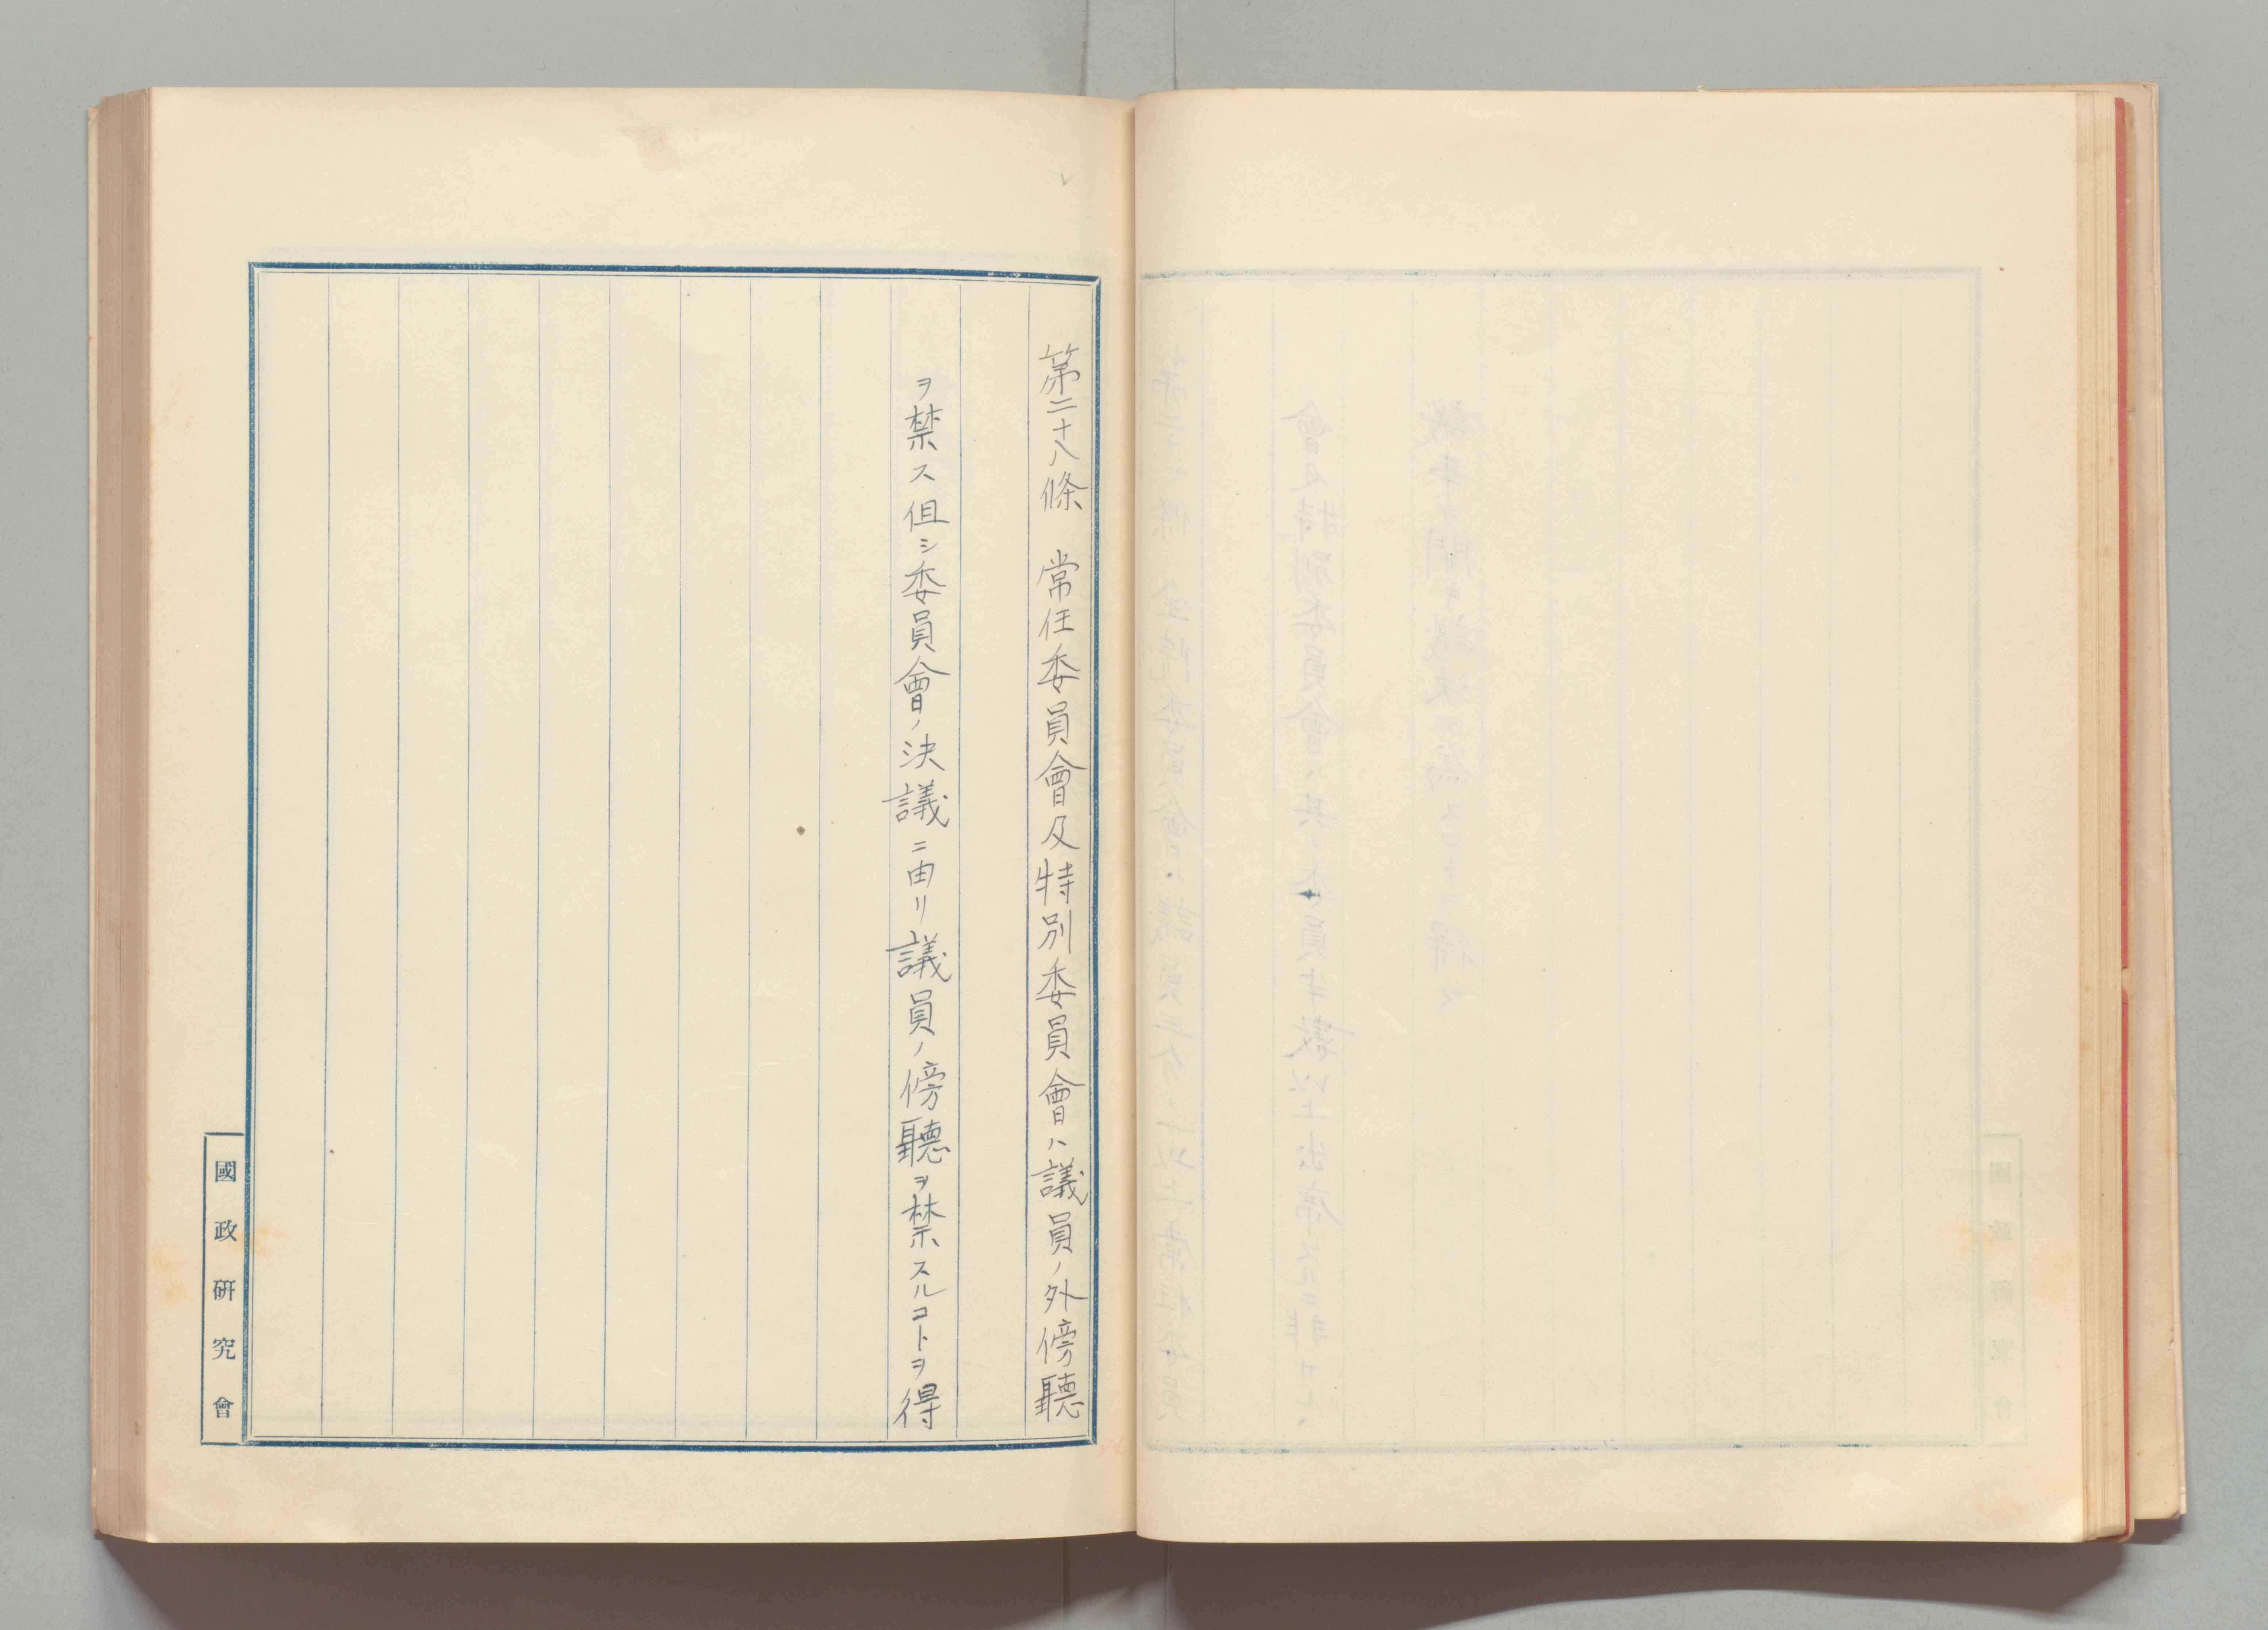 第二十八條　常任委員會及特別委員會ハ議員ノ外傍聽
ヲ禁ス但シ委員會ノ決議ニ由リ議員ノ傍聽ヲ禁スルコトヲ得
國政研究會